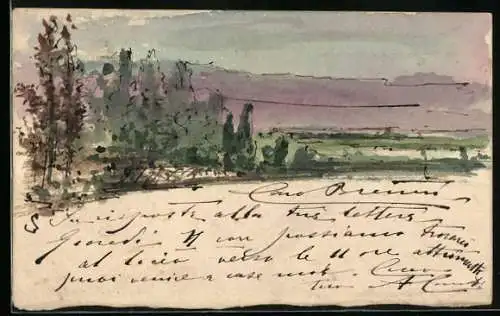 Caro
In risposta alla tua lettera
Giovedì non possiamo trovarci
al liceo verso le 11 ore altrimenti
puoi venire a casa mia. Ciao
tuo A.